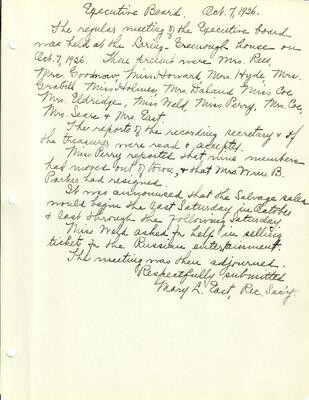 Executive Board, Oct. 7, 1926.
The regular meeting of the Executive board
was held at the Greenough house on
Oct. 7, 1926. Those present were Mrs. Rees,
Mrs. Goodnow, Miss Howard, Mrs. Hyde, Mrs.
Grabill Miss Holmes, Mrs. Daland Miss Coe
Mrs. Eldridge, Miss Weld, Miss Perry, Mrs. Coe,
Mrs. Sears & Mrs. East.
The reports of the recording secretary & of
the treasurer were read & accepted.
Miss Perry reported that nine members
had moved out of town, & that Mrs. Wm. B.
Parker had resigned.
It was announced that the Salvage sales
would begin the last Saturday in October
& last through the following Saturday
Miss Weld asked for help in selling
tickets for the Russian entertainment.
The meeting was then adjourned.
Respectfully submitted
Mary L. East, Rec. Sec'y.